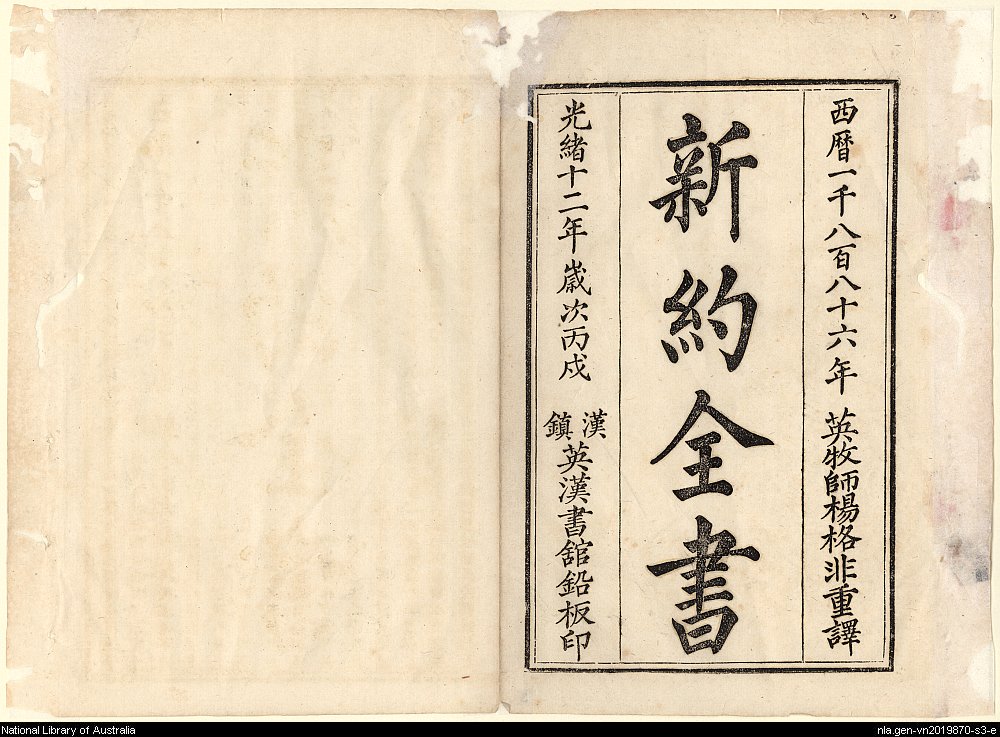 西暦一千八百八十六年 英牧師楊格非重譯
新約全書
光緒十二年歲次丙戌 漢鎮英漢書舘鉛板印
National Library of Australia
nla.gen-vn2019870-s3-e